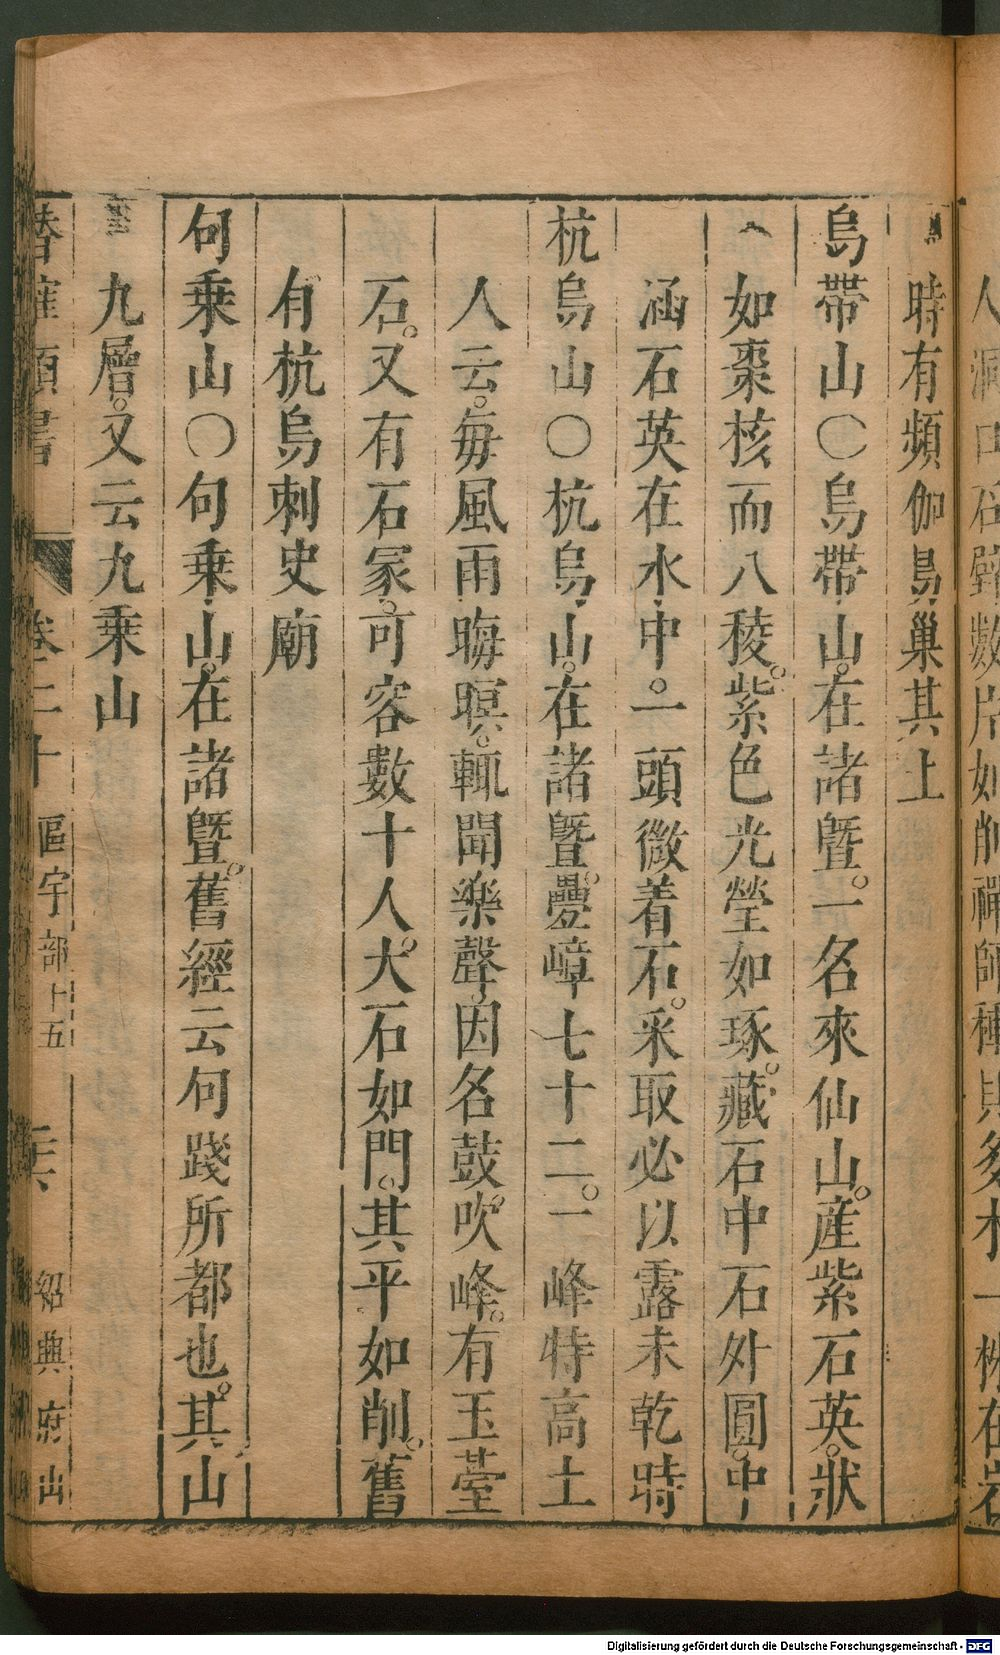 人洞口石壁數片如削禪師種
時有頻伽鳥巢其上
烏帶山〇烏帶山在諸暨一名來仙山產紫石英狀
如棗核而八稜紫色光瑩如琢藏石中石外圓中
涵石英在水中一頭微着石采取必以露未乾時
杭烏山〇杭烏山在諸暨疊嶂七十二一峰特高土
人云每風雨晦暝輒聞樂聲因名鼓吹峰有玉臺
石又有石冢可容數十人大石如門其平如削舊
有杭烏刺史廟
句乗山〇句乗山在諸曁舊經云句踐所都也其山
九層又云九乗山
卷二十 區宇部十五 紹興府山
Digitalisierung gefördert durch die Deutsche Forschungsgemeinschaft - DFG